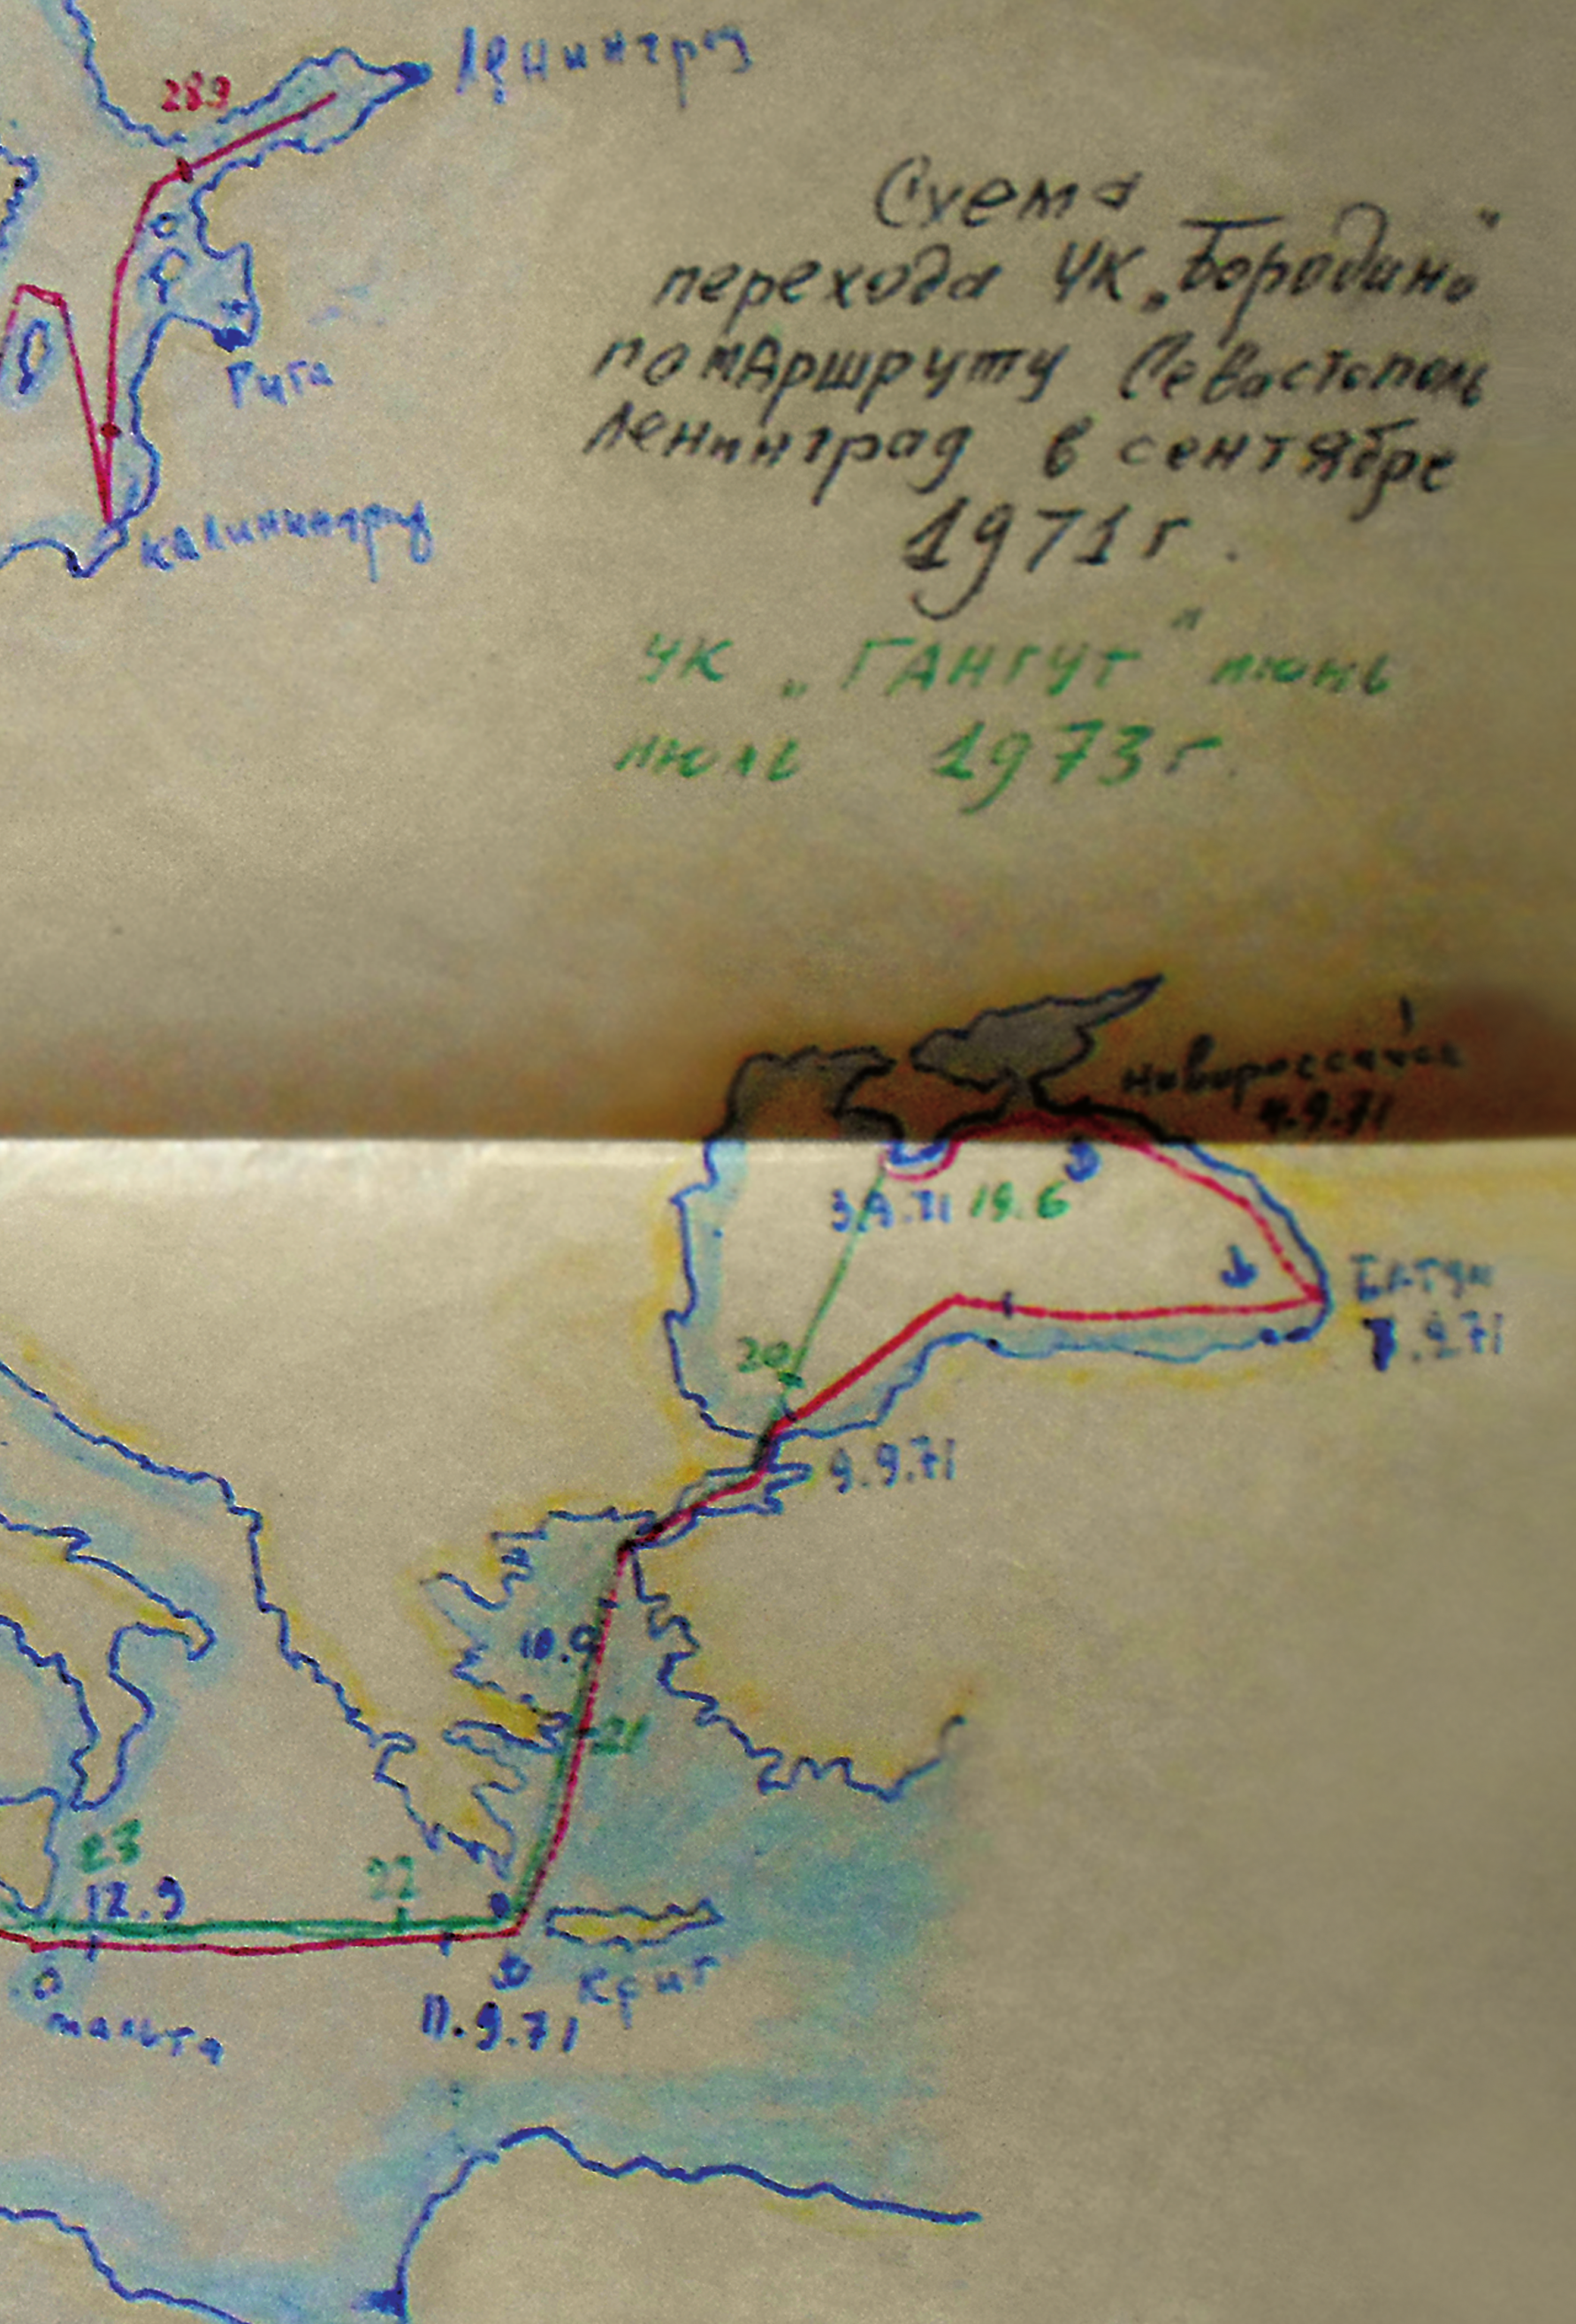 Ленинград
289
Схема
перехода УК „Бородино"
по маршруту Севастополь
Ленинград в сентябре
1971 г.
Рига
Калининград
УК „ГАНГУТ" июнь
июль 1973 г.
Новороссийск
4.9.71
3.9.71 19.6
Батум
7.9.71
20
9.9.71
10.9
21
23
12.9
22
Крит
11.9.71
Мальта